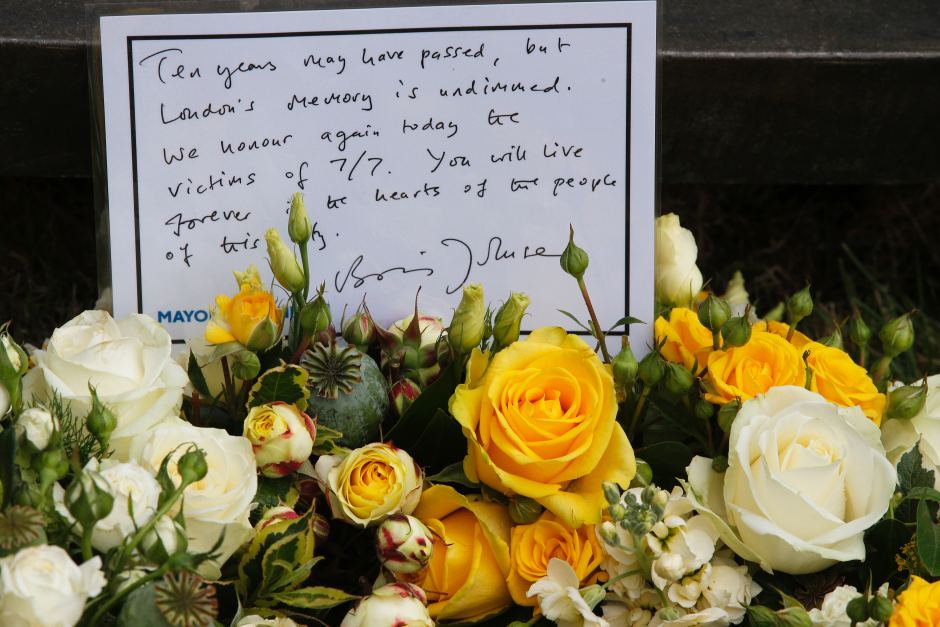 Ten years may have passed, but
London's memory is undimmed.
We honour again today the
victims of 7/7. You will live
forever the hearts of the people
of this
Boris Johnson
MAYO